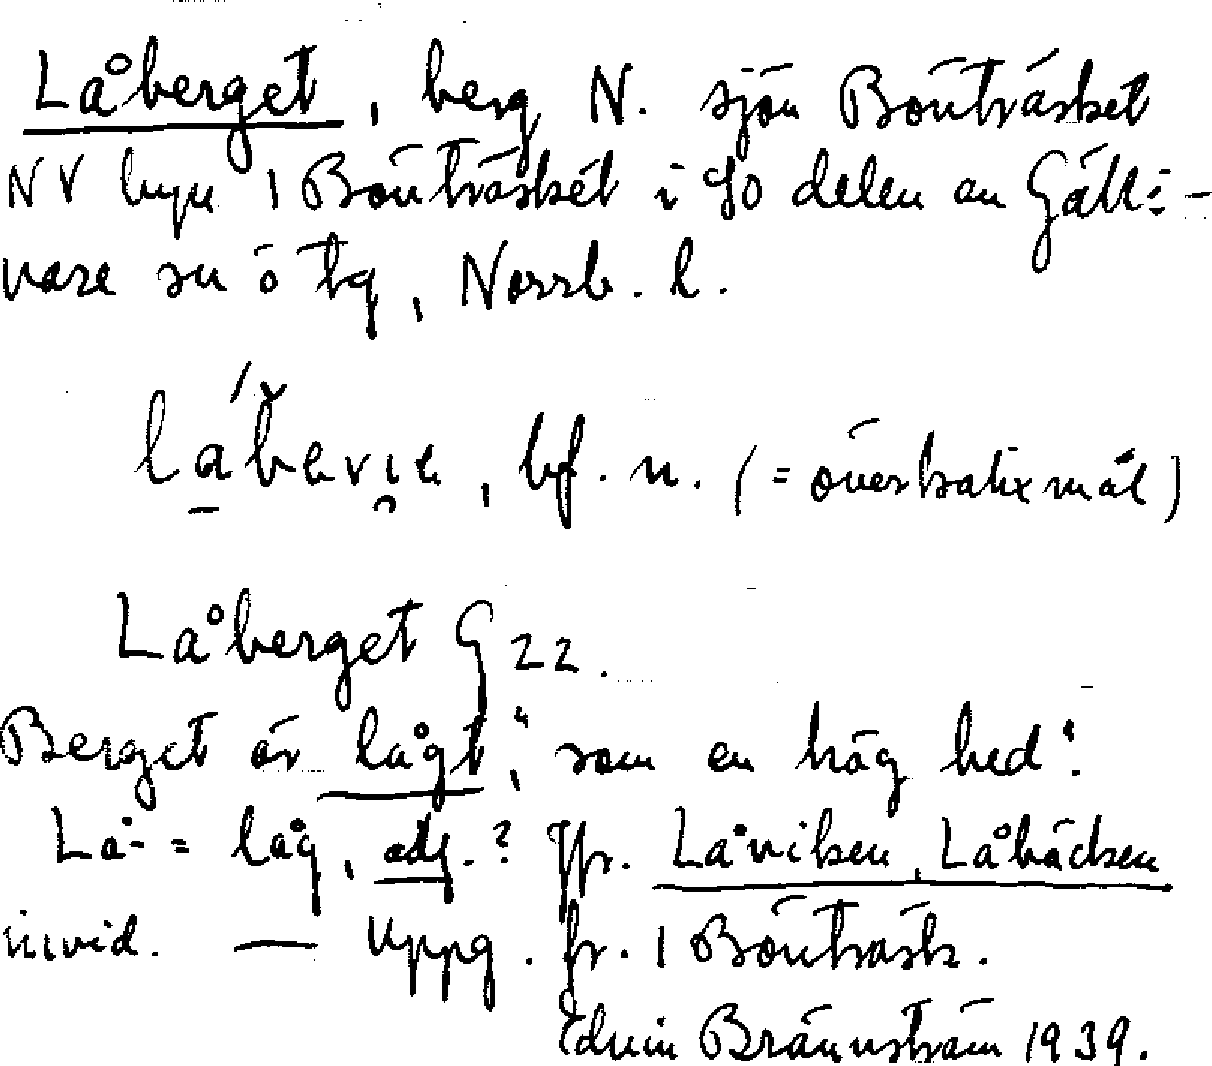 Låberget, berg N. sjön Bönträsket
NV byn 1 Bönträsket i SO delen av Gälli-
vare sn o tg, Norrb. l.
bf. n. (= överkalixmål)
Låberget G 22.
Berget är lågt, "som en hög hed".
Lå- = låg, adj.? Jfr. Låviken, Låbäcken
invid. — Uppg. fr. 1 Bönträsk.
Edvin Brännström 1939.